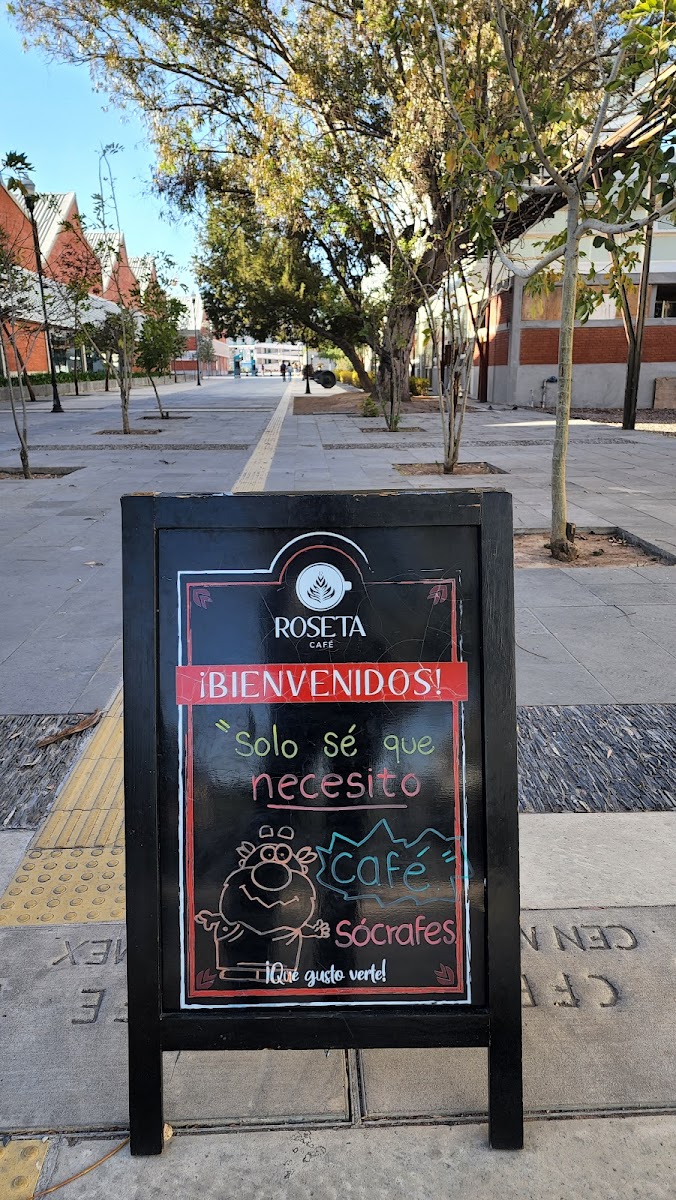 ROSETA
CAFÉ
¡BIENVENIDOS!
"Solo sé que
necesito
café"
Sócrafes
¡Qué gusto verte!